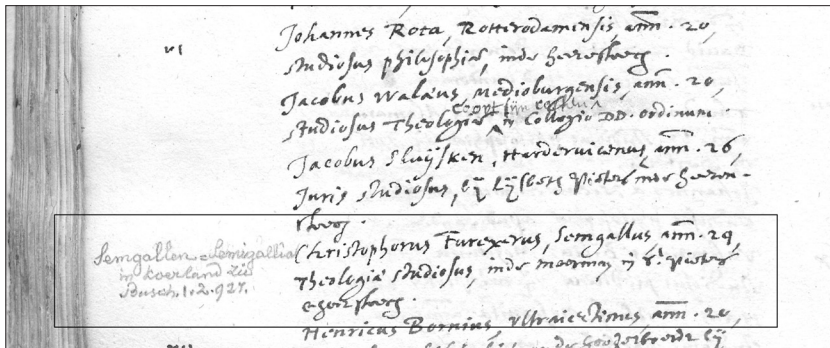 Johannes Rota, Rotterodamensis ann. 20,
studiosus philosophiæ, inde heeresteech.
Jacobus Walæus, Medioburgensis, ann. 20,
studiosus Theologiæ in Collegio DD. ordinum.
Jacobus Sluijsken, Hardervicenus, ann. 26,
Juris studiosus, bij Lijsbeth Pieters inde heeren-
steech.
Christophorus Furexerus, Semgallus, ann. 24,
Theologiæ studiosus, inde in St Pieters
steech.
Henricus Bornius, Ultraiectinus, ann. 20,
Semgallen = Semigallia
in Koerland zie
Busch. 1.2.927.